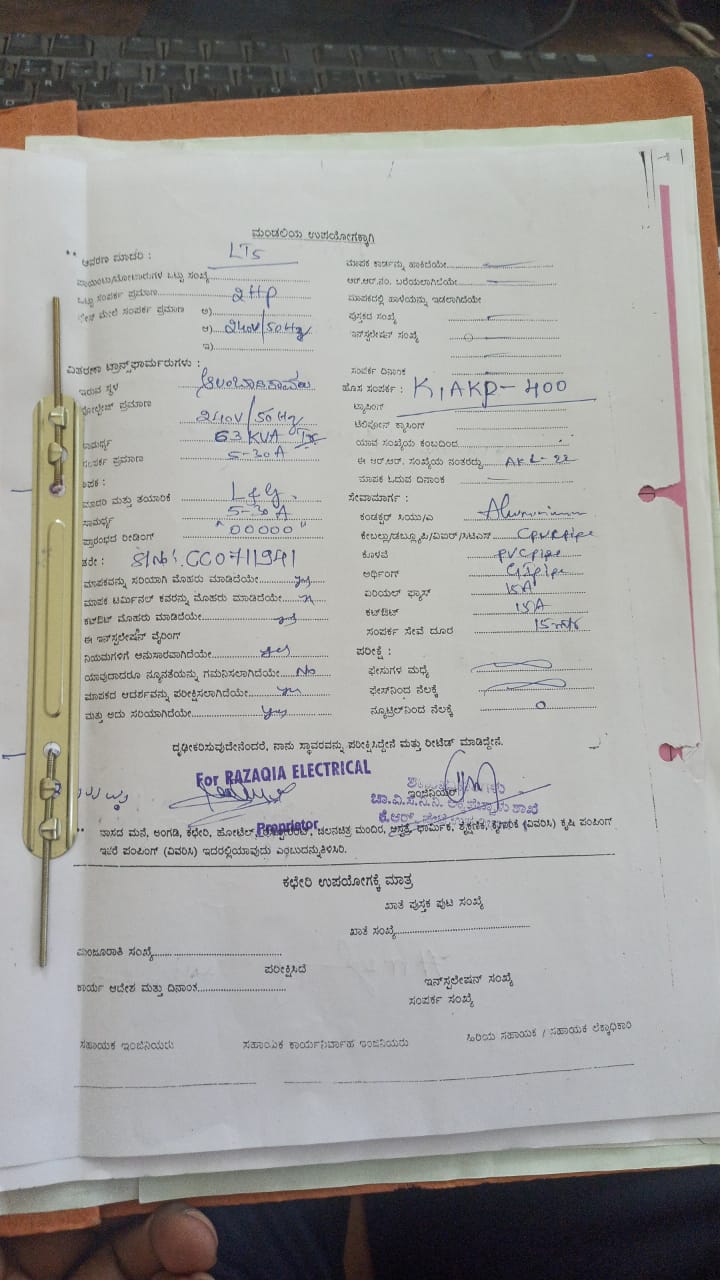 ಮಂಡಲಿಯ ಉಪಯೋಗಕ್ಕಾಗಿ
** ಆವರಣ ಮಾದರಿ : LT5
ಒಟ್ಟು ಸಂಖ್ಯೆ
ಒಟ್ಟು ಸಂಪರ್ಕ ಪ್ರಮಾಣ 2HP
ಮೇಲೆ ಸಂಪರ್ಕ ಪ್ರಮಾಣ ಅ)
ಆ) 240V/50Hz
ಇ)
ವಿತರಣಾ ಟ್ರಾನ್ಸ್‌ಫಾರ್ಮರುಗಳು :
ಇರುವ ಸ್ಥಳ
ವೋಲ್ಟೇಜ್ ಪ್ರಮಾಣ 240V/50Hz
ಸಾಮರ್ಥ್ಯ 63 KVA
ಸಂಪರ್ಕ ಪ್ರಮಾಣ 5-30A
ಮಾದರಿ ಮತ್ತು ತಯಾರಿಕೆ L&G.
ಸಾಮರ್ಥ್ಯ 5-30 A
ಪ್ರಾರಂಭದ ರೀಡಿಂಗ್ "00000"
ತರೇ : Sl No: CC0711941
ಮಾಪಕವನ್ನು ಸರಿಯಾಗಿ ಮೊಹರು ಮಾಡಿದೆಯೇ yes
ಮಾಪಕ ಟರ್ಮಿನಲ್ ಕವರನ್ನು ಮೊಹರು ಮಾಡಿದೆಯೇ
ಕಟ್‌ಔಟ್ ಮೊಹರು ಮಾಡಿದೆಯೇ yes
ಈ ಇನ್‌ಸ್ಟಲೇಷನ್ ವೈರಿಂಗ್
ನಿಯಮಗಳಿಗೆ ಅನುಸಾರವಾಗಿದೆಯೇ yes
ಯಾವುದಾದರೂ ನ್ಯೂನತೆಯನ್ನು ಗಮನಿಸಲಾಗಿದೆಯೇ No
ಮಾಪಕದ ಆದರ್ಶವನ್ನು ಪರೀಕ್ಷಿಸಲಾಗಿದೆಯೇ yes
ಮತ್ತು ಅದು ಸರಿಯಾಗಿದೆಯೇ yes
ಮಾಪಕ ಕಾರ್ಡನ್ನು ಹಾಕಿದೆಯೇ
ಆರ್.ಆರ್.ನಂ. ಬರೆಯಲಾಗಿದೆಯೇ
ಮಾಪಕದಲ್ಲಿ ಹಾಳೆಯನ್ನು ಇಡಲಾಗಿದೆಯೇ
ಪುಸ್ತಕದ ಸಂಖ್ಯೆ
ಇನ್‌ಸ್ಟಲೇಷನ್ ಸಂಖ್ಯೆ
ಸಂಪರ್ಕ ದಿನಾಂಕ
ಹೊಸ ಸಂಪರ್ಕ : K1AKP-400
ಟ್ಯಾಪಿಂಗ್
ಟೆಲಿಫೋನ್ ಕ್ರಾಸಿಂಗ್
ಯಾವ ಸಂಖ್ಯೆಯ ಕಂಬದಿಂದ
ಈ ಆರ್.ಆರ್. ಸಂಖ್ಯೆಯ ನಂತರದ್ದು AKL-22
ಮಾಪಕ ಓದುವ ದಿನಾಂಕ
ಸೇವಾಮಾರ್ಗ :
ಕಂಡಕ್ಟರ್ ಸಿಯು/ಎ Aluminium
ಕೇಬಲ್ಲು/ಡಬ್ಲ್ಯೂಪಿ/ವಿಐಆರ್/ಸಿಟಿಎಸ್ Cpvcpipe
ಕೊಳವೆ pvcpipe
ಅರ್ಥಿಂಗ್ GIpipe
ಏರಿಯಲ್ ಫ್ಯೂಸ್ 15A
ಕಟ್‌ಔಟ್ 15A
ಸಂಪರ್ಕ ಸೇವೆ ದೂರ
ಪರೀಕ್ಷೆ :
ಫೇಸುಗಳ ಮಧ್ಯೆ
ಫೇಸ್‌ನಿಂದ ನೆಲಕ್ಕೆ
ನ್ಯೂಟ್ರಲ್‌ನಿಂದ ನೆಲಕ್ಕೆ 0
ದೃಢೀಕರಿಸುವುದೇನೆಂದರೆ, ನಾನು ಸ್ಥಾವರವನ್ನು ಪರೀಕ್ಷಿಸಿದ್ದೇನೆ ಮತ್ತು ರೀಟೆಡ್ ಮಾಡಿದ್ದೇನೆ.
For RAZAQIA ELECTRICAL
Proprietor
ಇಂಜಿನಿಯರ್
** ವಾಸದ ಮನೆ, ಅಂಗಡಿ, ಕಛೇರಿ, ಹೋಟೆಲ್, ಚಲನಚಿತ್ರ ಮಂದಿರ, ಆಸ್ಪತ್ರೆ, ಧಾರ್ಮಿಕ, ಶೈಕ್ಷಣಿಕ, ಕೈಗಾರಿಕೆ (ವಿವರಿಸಿ) ಕೃಷಿ ಪಂಪಿಂಗ್
ಇತರೆ ಪಂಪಿಂಗ್ (ವಿವರಿಸಿ) ಇದರಲ್ಲಿಯಾವುದು ಎಂಬುದನ್ನುತಿಳಿಸಿರಿ.
ಕಛೇರಿ ಉಪಯೋಗಕ್ಕೆ ಮಾತ್ರ
ಖಾತೆ ಪುಸ್ತಕ ಪುಟ ಸಂಖ್ಯೆ
ಖಾತೆ ಸಂಖ್ಯೆ
ಮಂಜೂರಾತಿ ಸಂಖ್ಯೆ
ಪರೀಕ್ಷಿಸಿದೆ
ಕಾರ್ಯ ಆದೇಶ ಮತ್ತು ದಿನಾಂಕ
ಇನ್‌ಸ್ಟಲೇಷನ್ ಸಂಖ್ಯೆ
ಸಂಪರ್ಕ ಸಂಖ್ಯೆ
ಸಹಾಯಕ ಇಂಜಿನಿಯರು ಸಹಾಯಕ ಕಾರ್ಯನಿರ್ವಾಹ ಇಂಜಿನಿಯರು ಹಿರಿಯ ಸಹಾಯಕ / ಸಹಾಯಕ ಲೆಕ್ಕಾಧಿಕಾರಿ